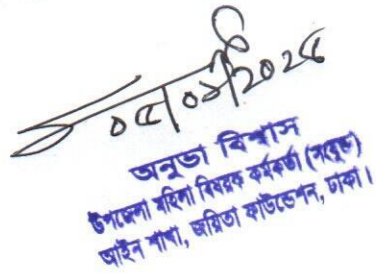 ০৫/০১/2025
অনুভা বিশ্বাস
উপজেলা মহিলা বিষয়ক কর্মকর্তা (সংযুক্ত)
আইন শাখা, জয়িতা ফাউন্ডেশন, ঢাকা।